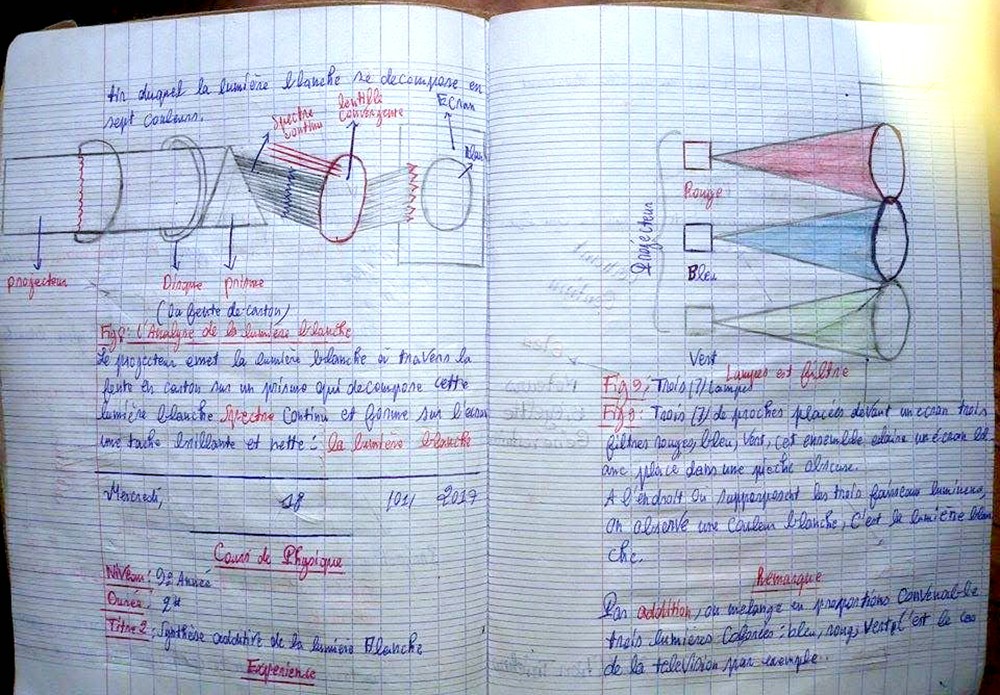 tir duquel la lumière blanche se decompose en
sept couleurs.
Spectre
continu
lentille
convergente
Ecran
Blanc
projecteur
Disque
prisme
(la fente de carton)
Fig 8: l'Analyse de la lumière blanche
Le projecteur emet la lumière blanche à travers la
fente en carton sur un prisme qui decompose cette
lumière blanche Spectre Continu et forme sur l'écran
une tache brillante et nette : la lumière blanche
Mercredi, 18 /01/ 2017
Cours de Physique
Niveau : 9e Année
Durée : 2H
Titre 2 : Synthèse additive de la lumière Blanche
Expérience
Projecteur
Rouge
Bleu
Vert
Lampes est filtre
Fig 9 : Trois (3) Lampes
Fig 9 : Trois (3) de proches placées devant un ecran trois
filtres rouges, bleu, Vert, cet ensemble eclaire un écran bl-
anc place dans une pièche obscure.
A l'endroit où supperposent les trois faisceau lumineux,
on observe une couleur blanche, C'est la lumière blan
che.
Remarque
Par addition, ou melange en proportions convenable
trois lumières Colorées : bleu, rouge, Vert, C'est le cas
de la television par exemple.